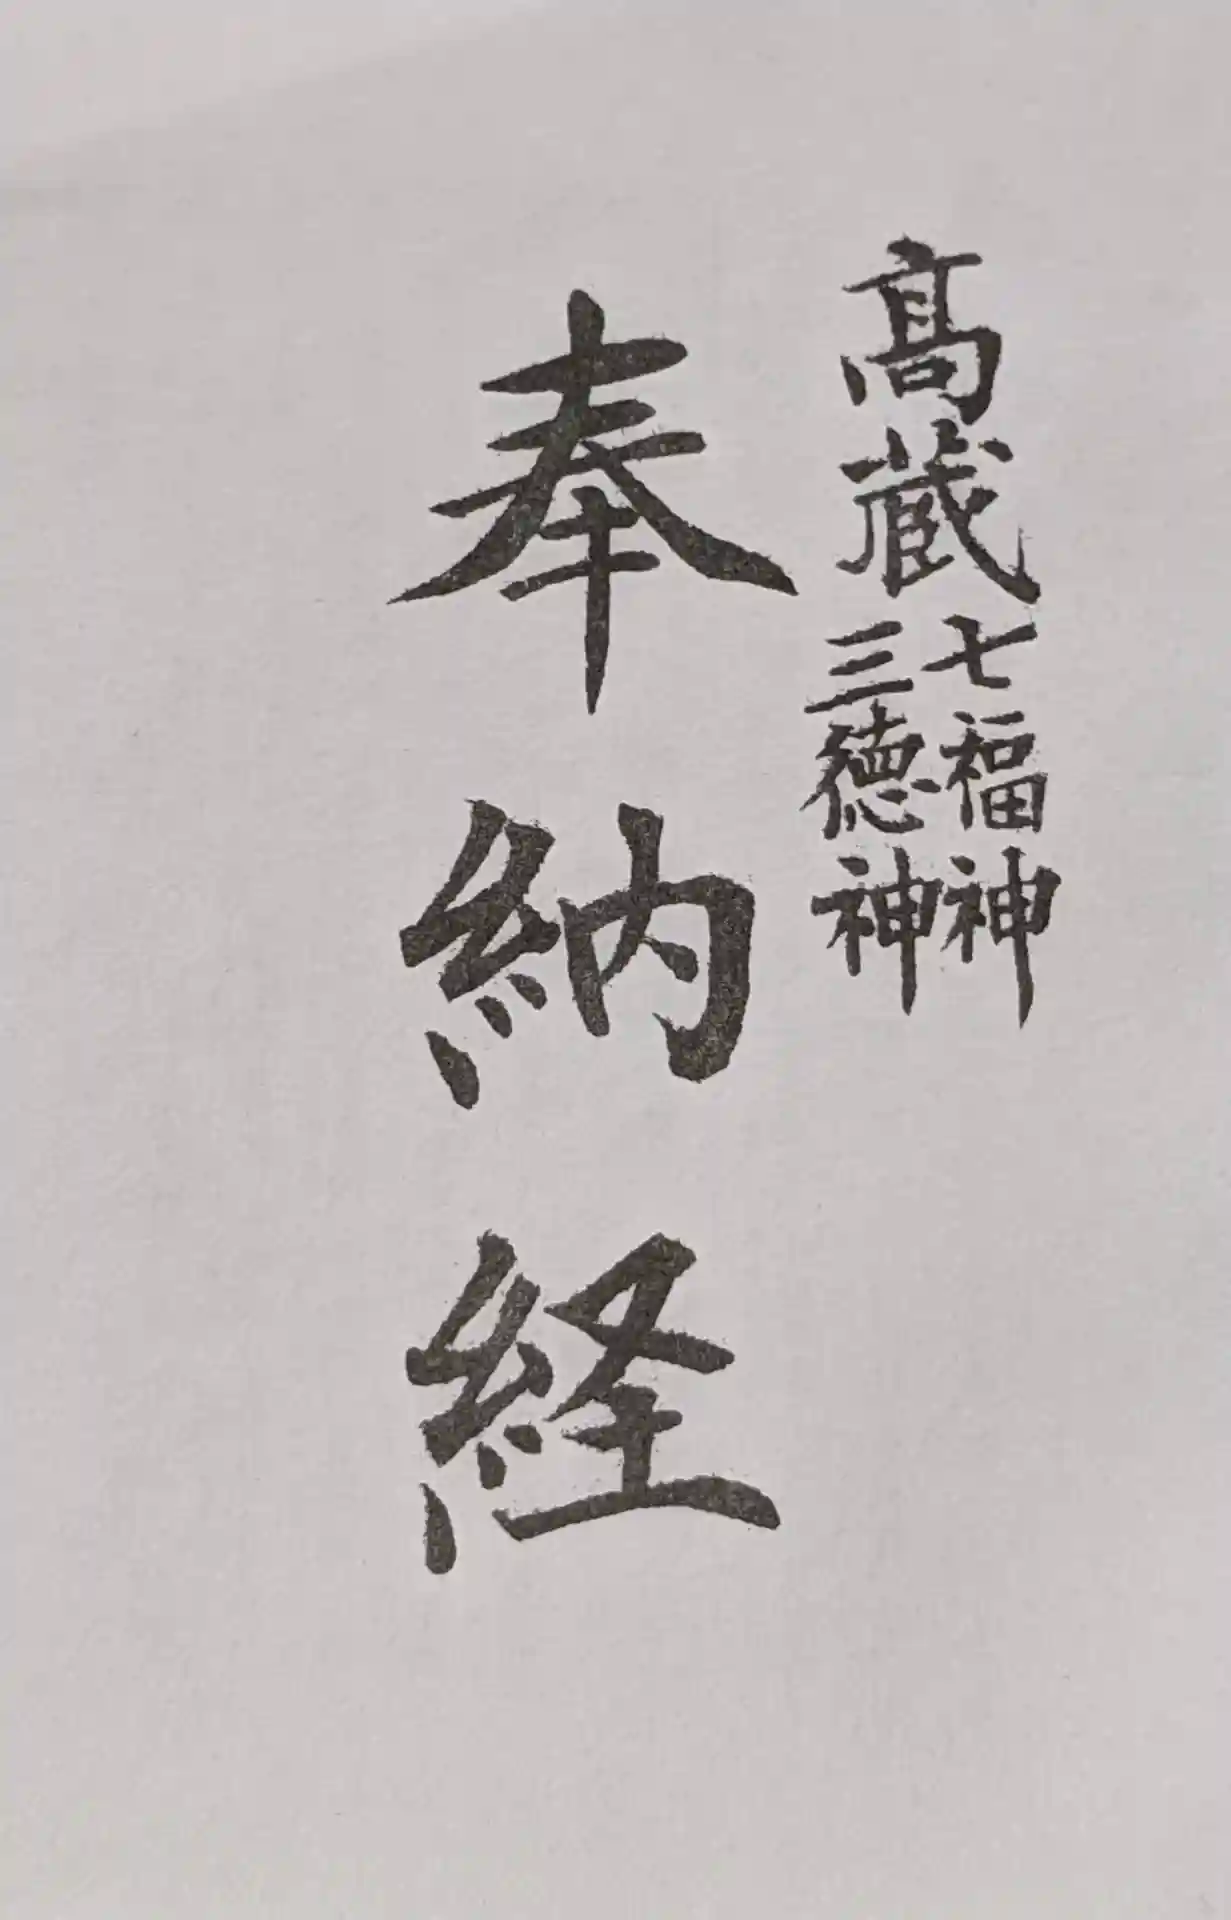 髙蔵
七福神
三徳神
奉納経